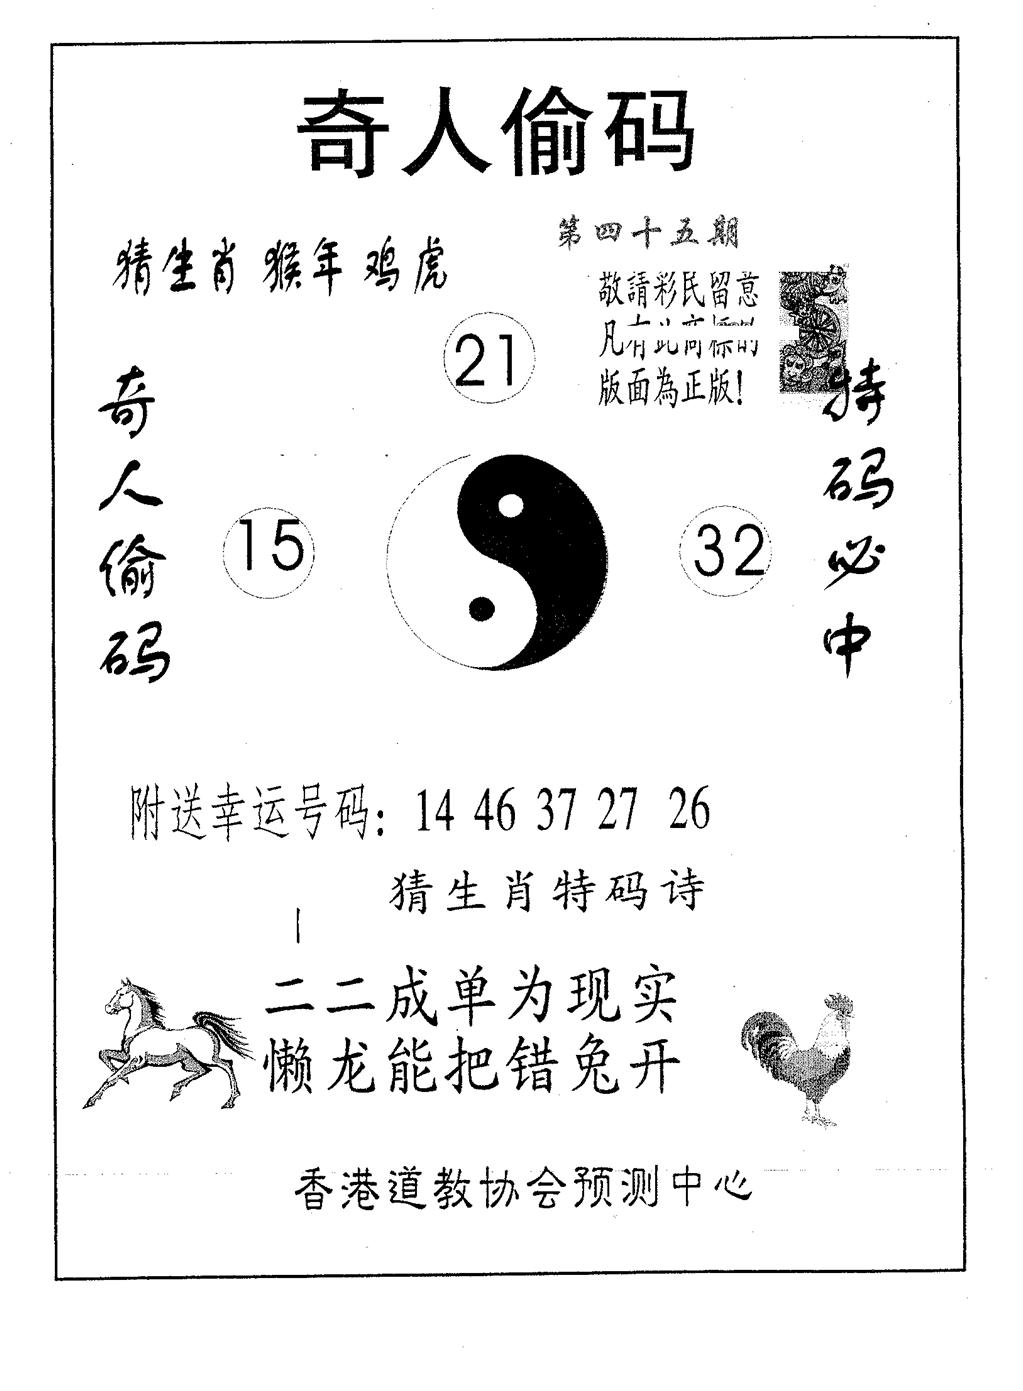 奇人偷码
第四十五期
猜生肖 猴年 鸡虎
敬請彩民留意
凡有此商標的
版面為正版！
21
15
32
奇人偷码
特码必中
附送幸运号码：14 46 37 27 26
猜生肖特码诗
二二成单为现实
懒龙能把错兔开
香港道教协会预测中心